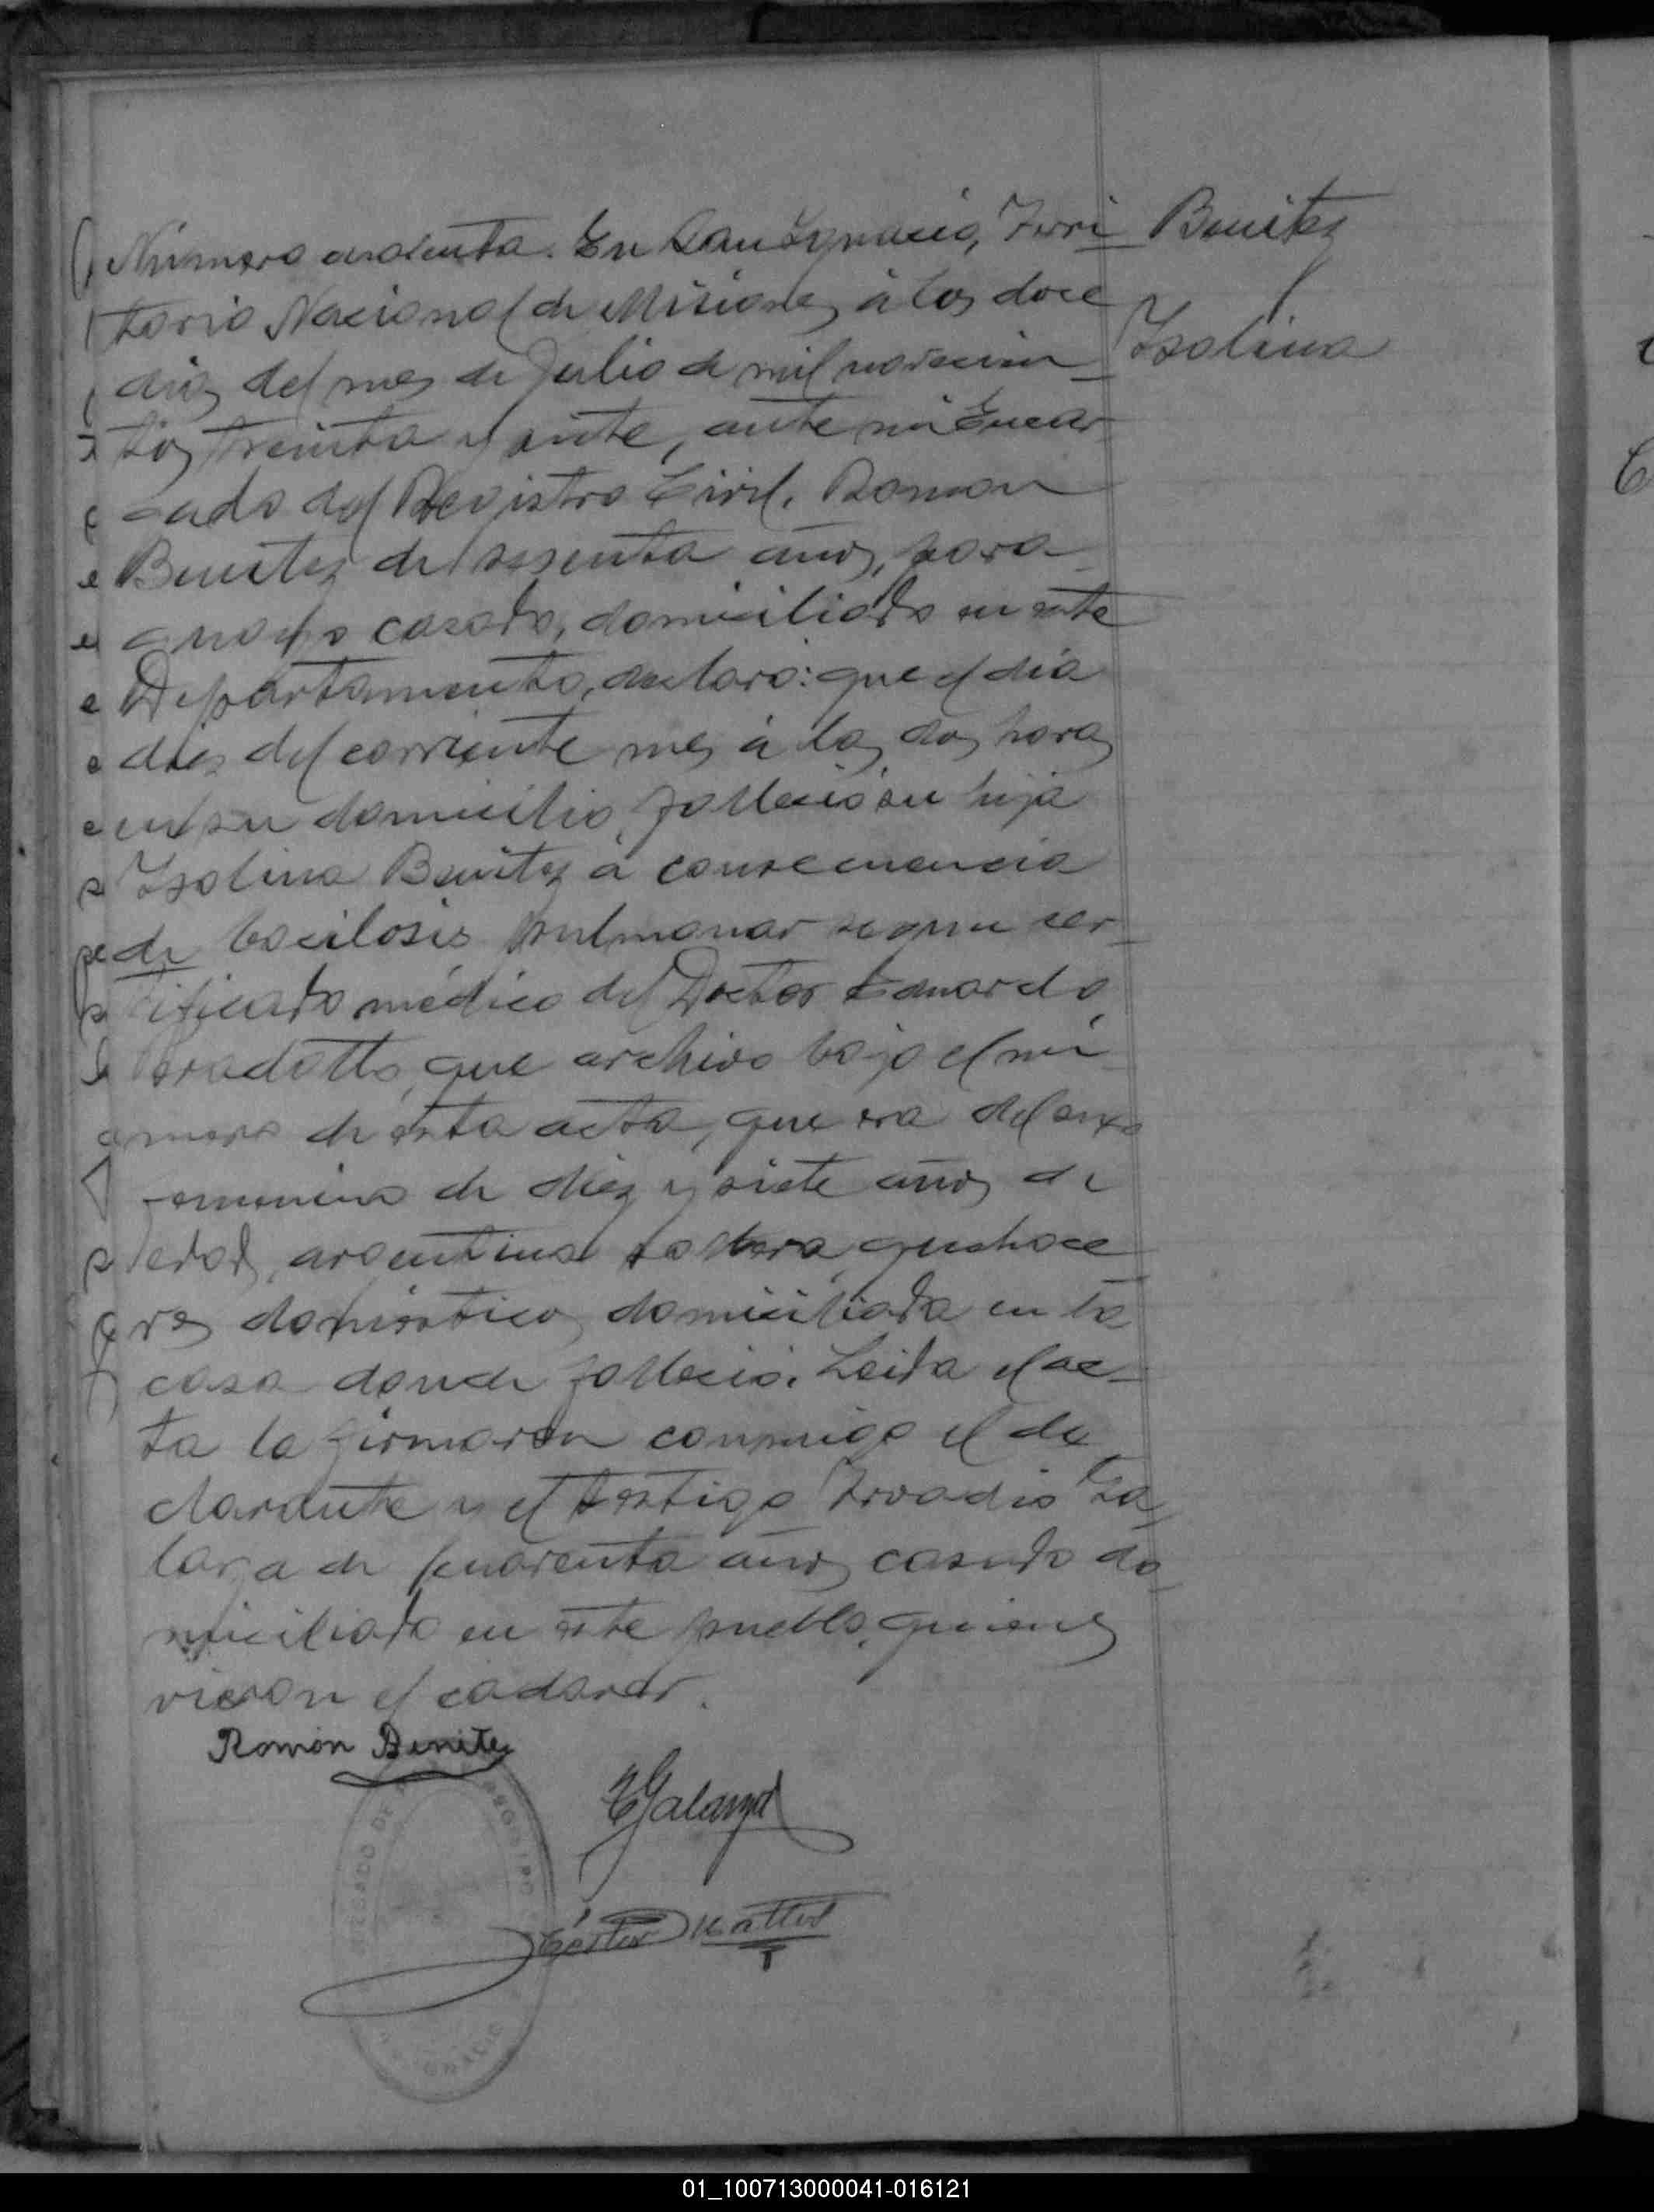 Número cuarenta. En San Ignacio, Terri
Benitez
torio Nacional de Misiones á los doce
Isolina
dias del mes de Julio de mil novecien
tos treinta y siete, ante mi Encar
gado del Registro Civil, Ramon
Benitez de sesenta años, para
guayo casado, domiciliado en este
Departamento, declaró: que el dia
diez del corriente mes á las dos horas
en su domicilio, falleció su hija
Isolina Benitez á consecuencia
de bacilosis pulmonar segun cer
tificado médico del Doctor Eduardo
Bradotto, que archivo bajo el nú
mero de esta acta, que era del sexo
femenino de diez y siete años de
edad, argentina soltera, quehace
res domésticos domiciliada en la
casa donde falleció. Leida el ac
ta la firmaron conmigo el de
clarante y el testigo
de cuarenta años casado do
miciliado en este pueblo, quienes
vieron el cadaver.
Ramón Benitez
JUZGADO DE
REGISTRO
IGNACIO
01_100713000041-016121